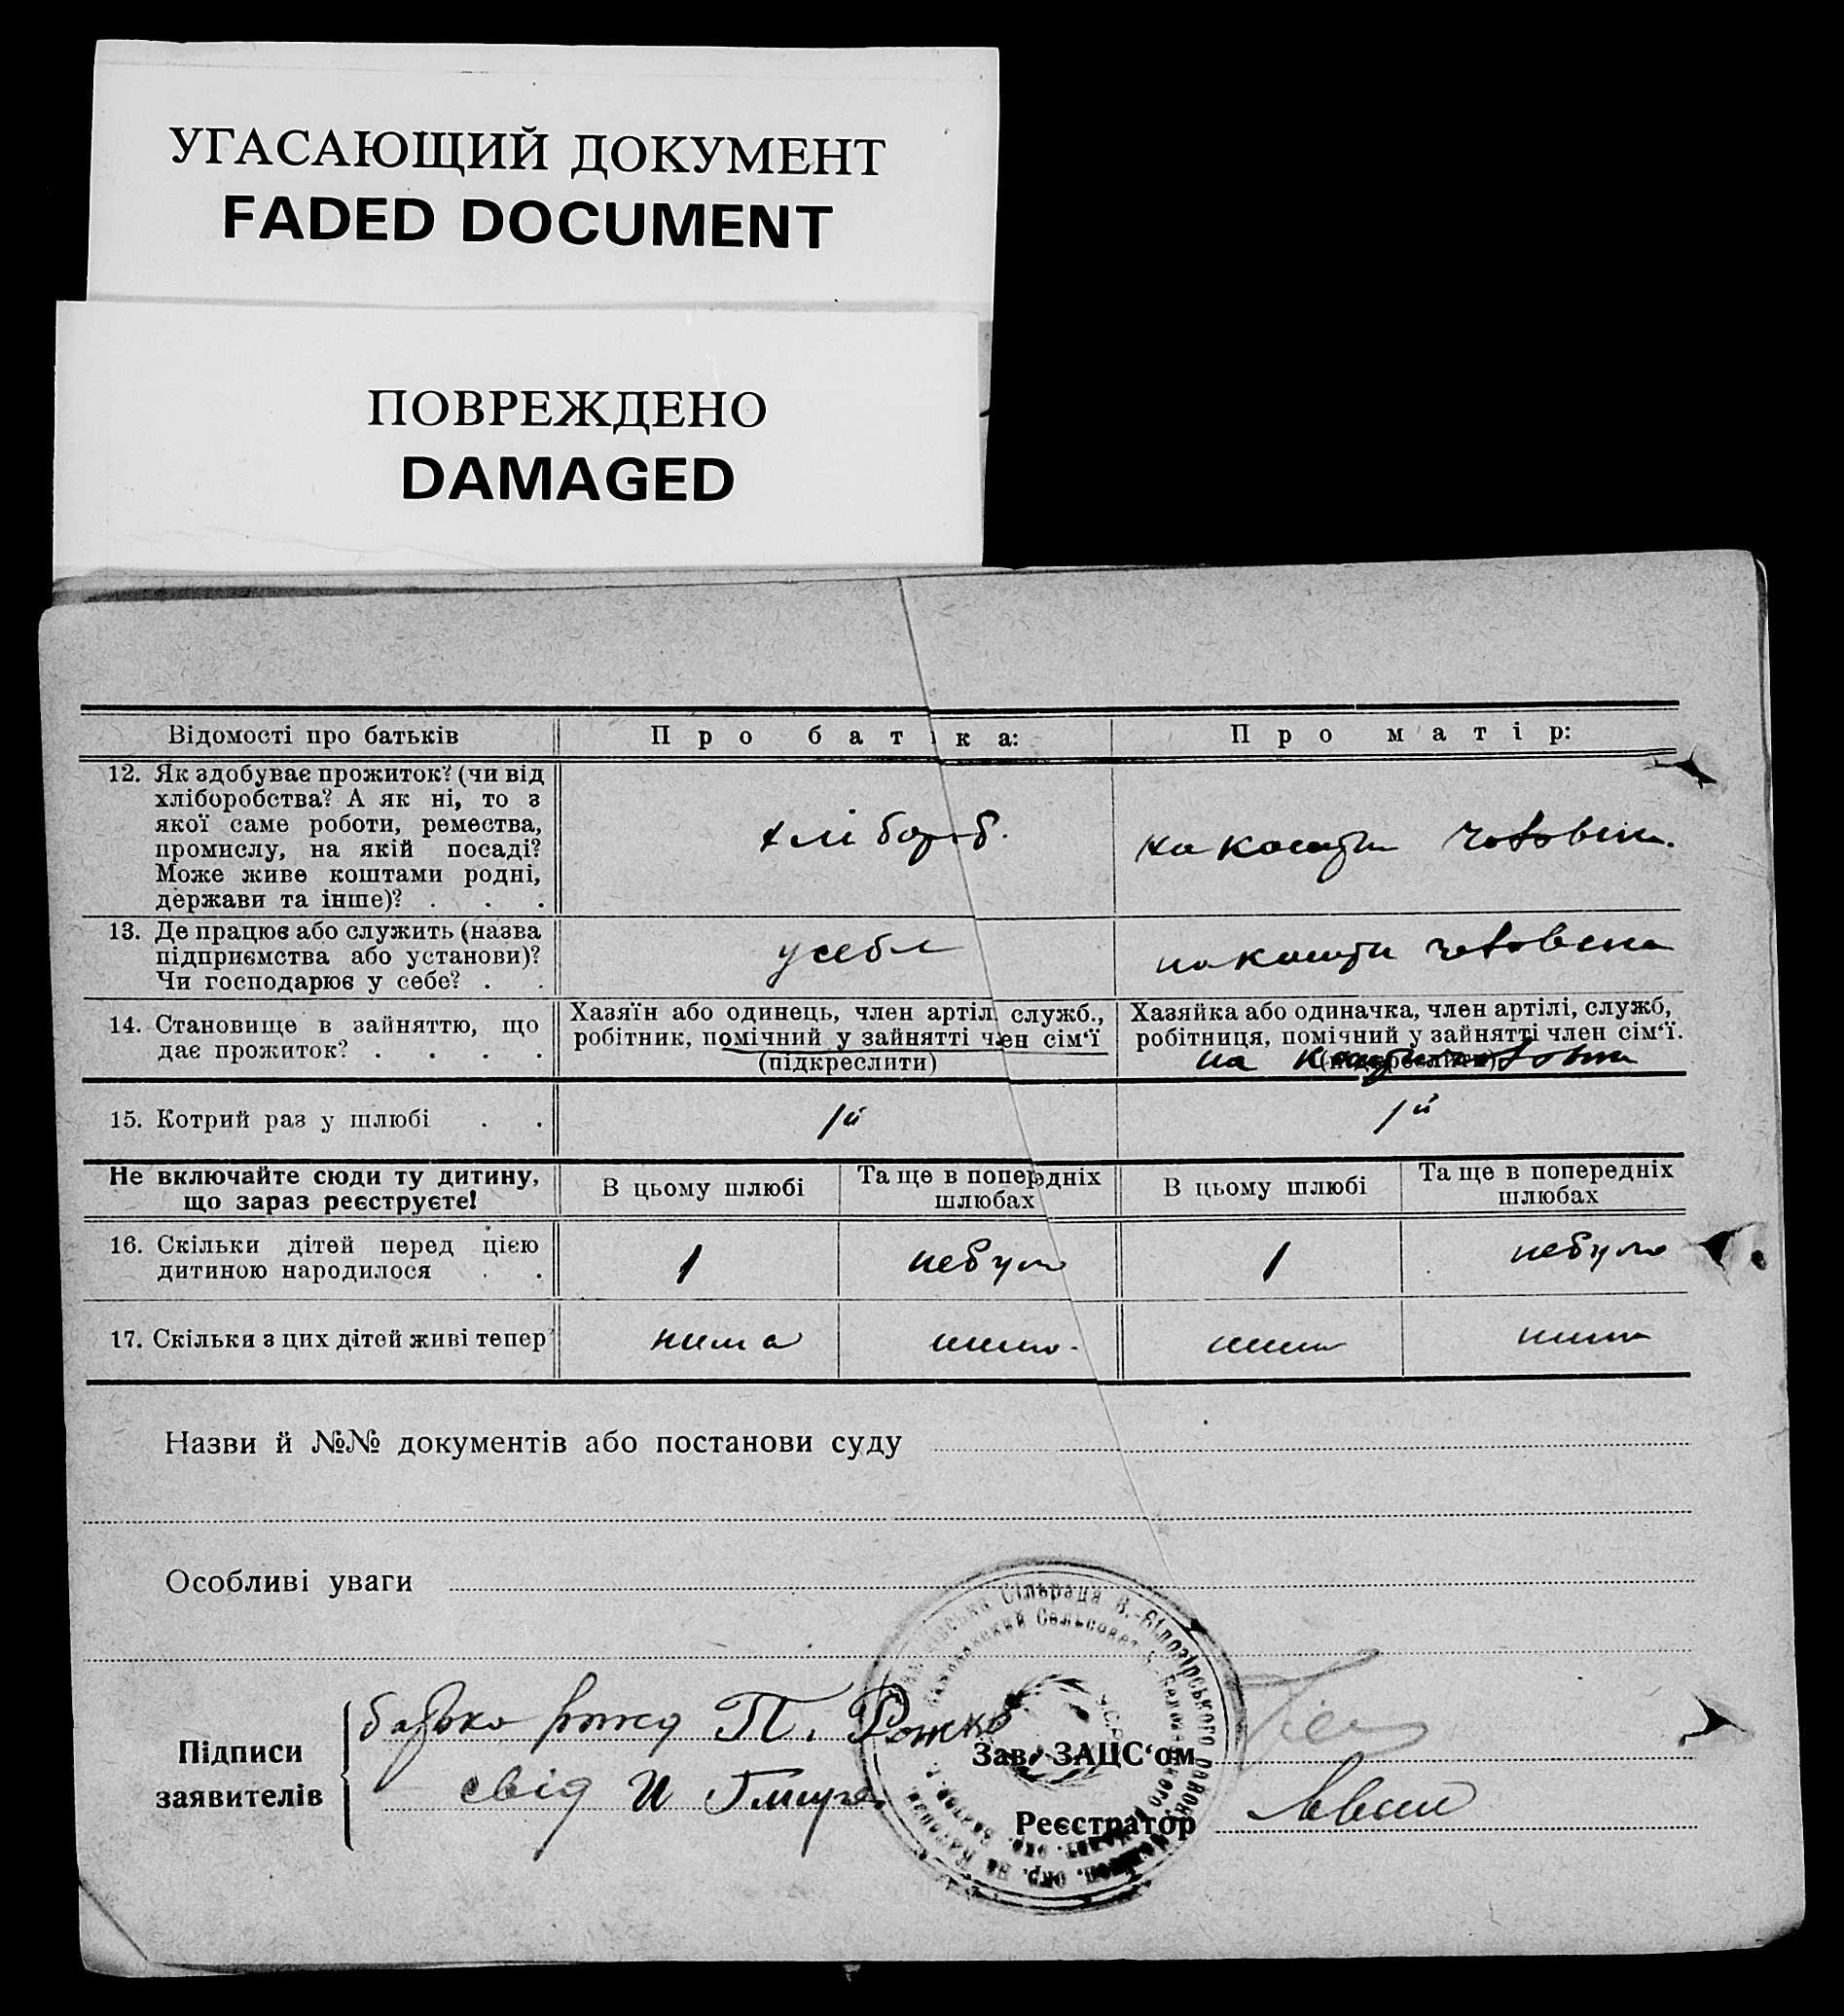 УГАСАЮЩИЙ ДОКУМЕНТ
FADED DOCUMENT
ПОВРЕЖДЕНО
DAMAGED
Відомості про батьків Про батька: Про матір:
12. Як здобуває прожиток? (чи від
хліборобства? А як ні, то з
якої саме роботи, ремества,
промислу, на якій посаді?
Може живе коштами родні,
держави та інше)? . . .
хлібороб. на кошти чоловіка.
13. Де працює або служить (назва
підприємства або установи)?
Чи господарює у себе? . .
у себе на кошти чоловіка
14. Становище в зайняттю, що
дає прожиток? . . . .
Хазяїн або одинець, член артіл служб.,
робітник, помічний у зайнятті член сім‘ї
(підкреслити)
Хазяйка або одиначка, член артілі, служб,
робітниця, помічний у зайнятті член сім‘ї.
(підкреслити)
на кошти
15. Котрий раз у шлюбі . . 1й 1й
Не включайте сюди ту дитину,
що зараз реєструєте!
В цьому шлюбі Та ще в попередніх
шлюбах
В цьому шлюбі Та ще в попередніх
шлюбах
16. Скільки дітей перед цією
дитиною народилося . .
1 небуло 1 небуло
17. Скільки з цих дітей живі тепер нима нима нима нима
Назви й №№ документів або постанови суду
Особливі уваги
Сільрада В.-Білозірського району
Сельсовет
Підписи
заявителів
батько П. Рожко
свід И
Зав. ЗАЦС‘ом
Реєстратор